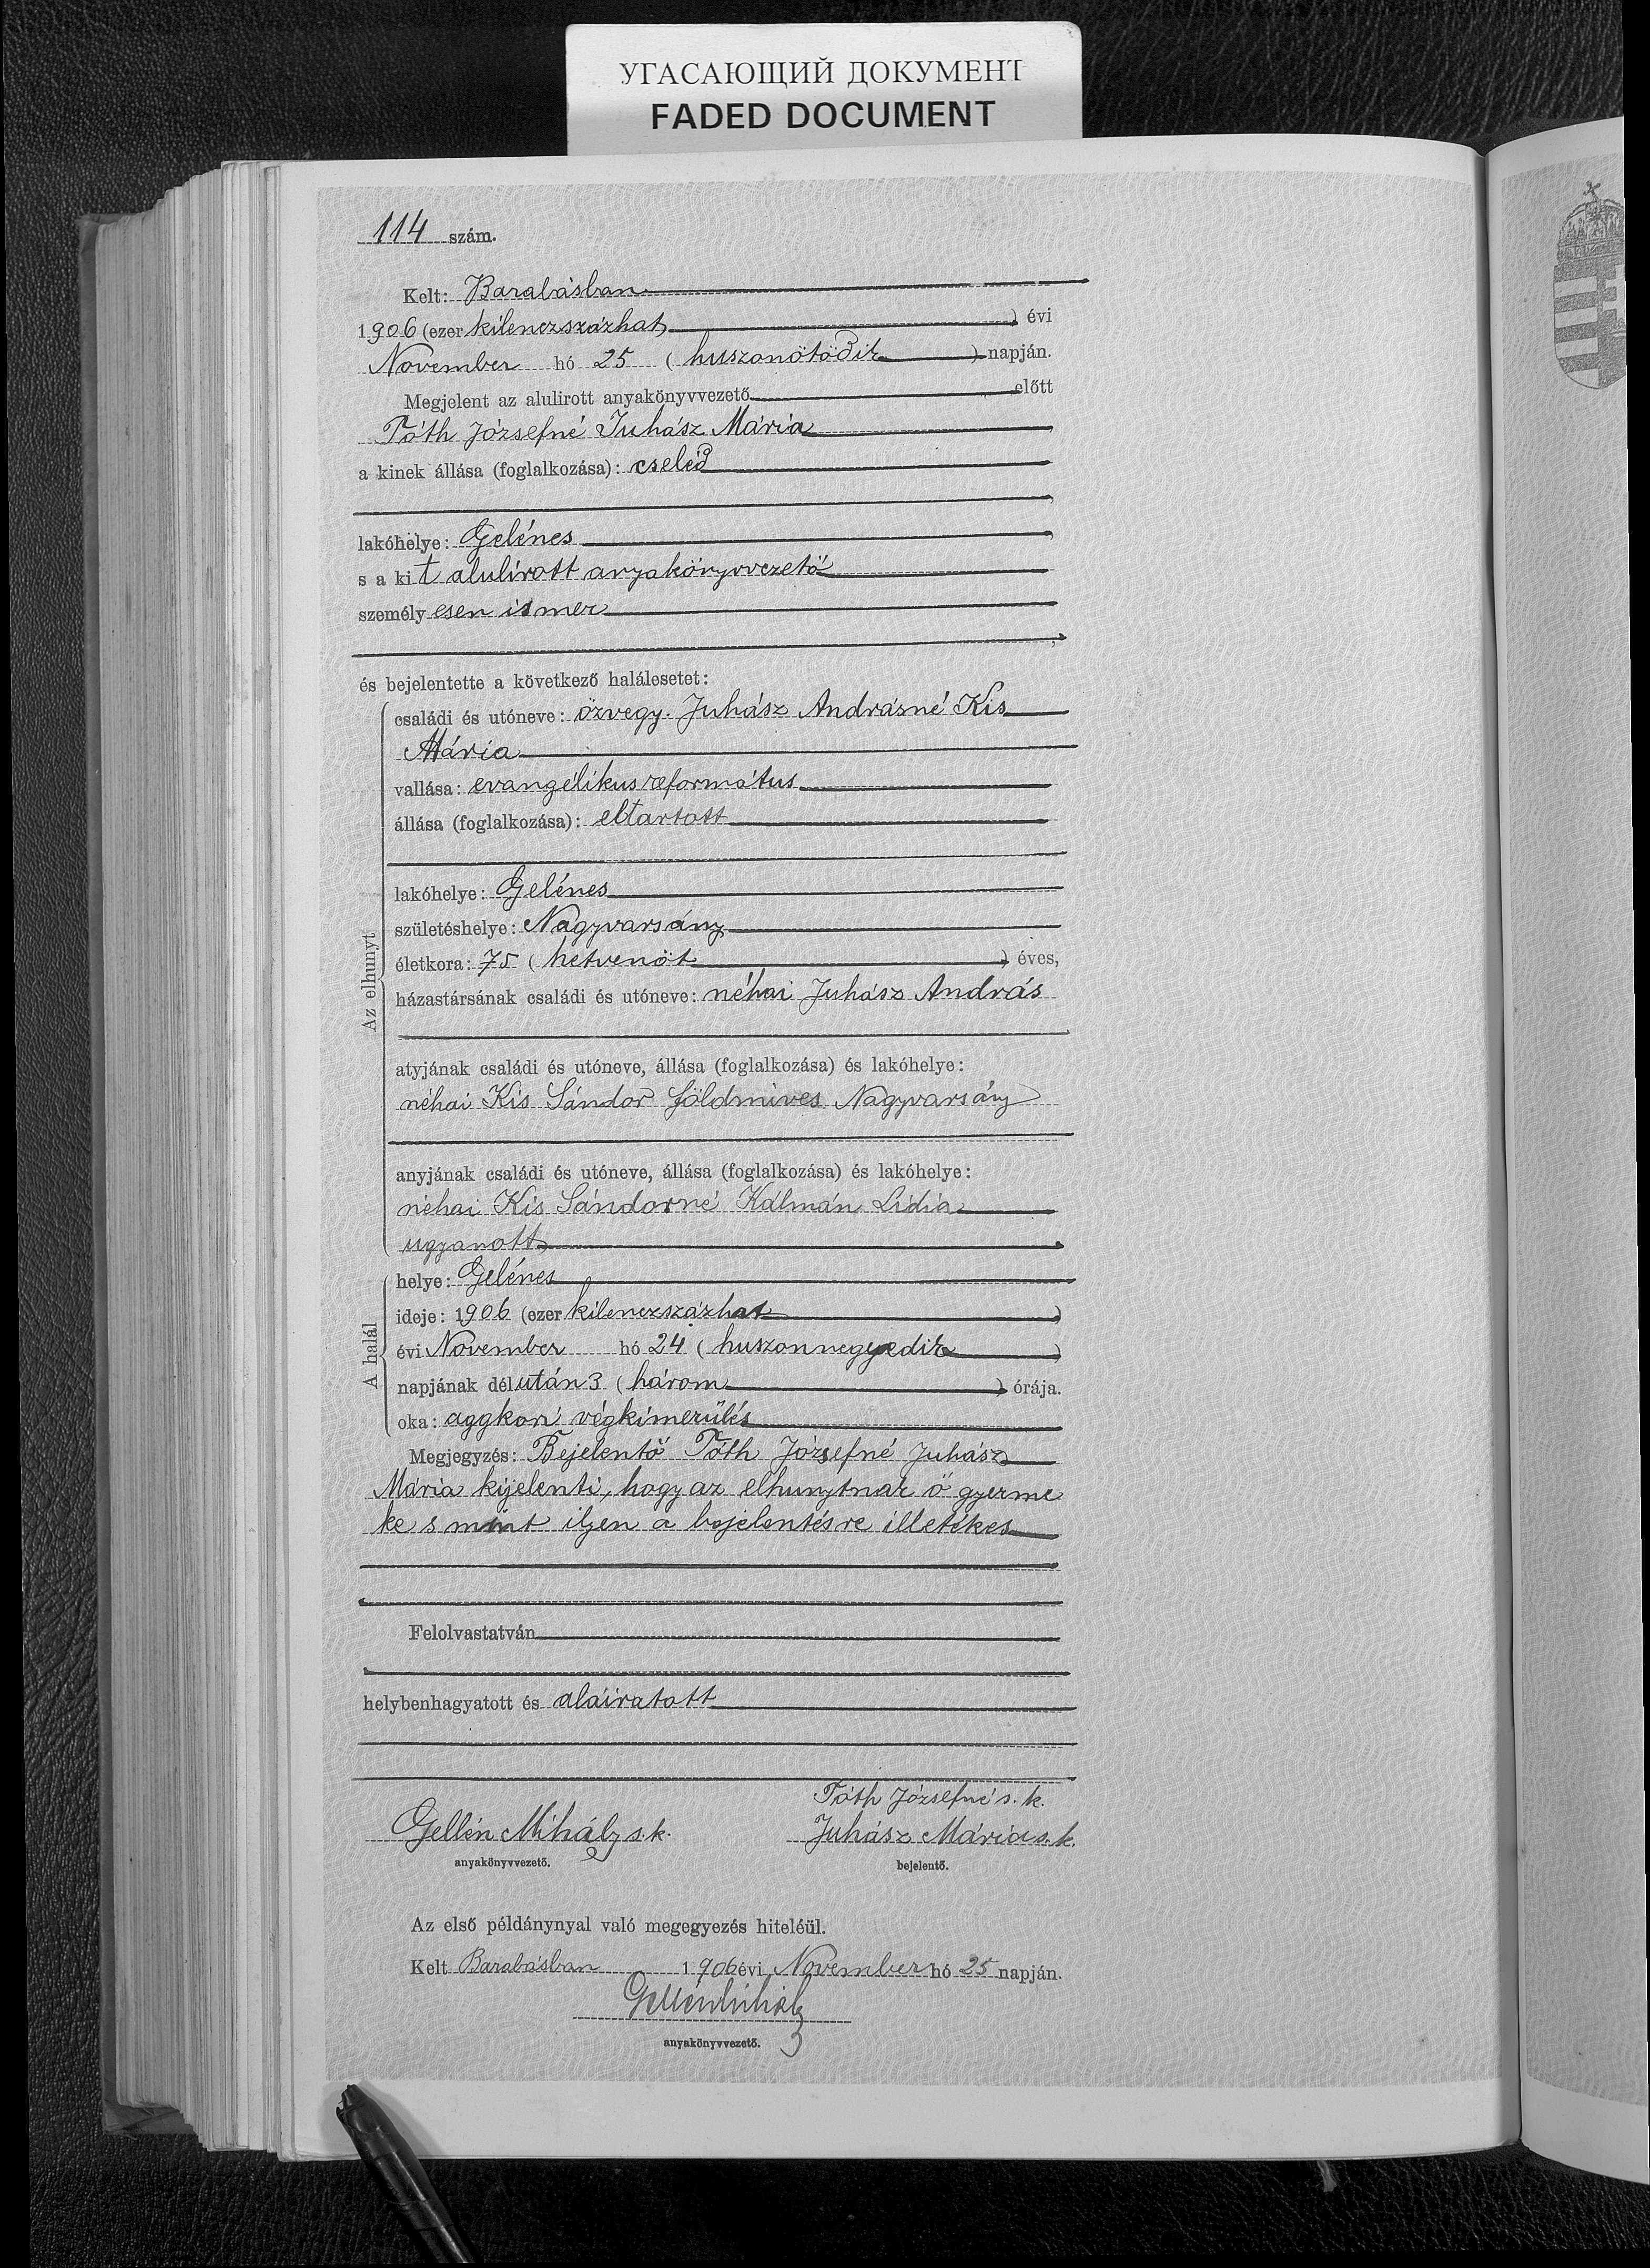 УГАСАЮЩИЙ ДОКУМЕНТ
FADED DOCUMENT
114 szám.
Kelt: Barabásban
1906 (ezer kilenczszázhat) évi
November hó 25 (huszonötödik) napján.
Megjelent az alulirott anyakönyvvezető előtt
Tóth Józsefné Juhász Mária
a kinek állása (foglalkozása): cseléd
lakóhelye: Gelénes
s a kit alulírott anyakönyvvezető
személyesen ismer
és bejelentette a következő halálesetet:
Az elhunyt
családi és utóneve: özvegy. Juhász Andrásné Kis
Mária
vallása: evangélikus református
állása (foglalkozása): eltartott
lakóhelye: Gelénes
születéshelye: Nagyvarsány
életkora: 75 (hetvenöt) éves,
házastársának családi és utóneve: néhai Juhász András
atyjának családi és utóneve, állása (foglalkozása) és lakóhelye:
néhai Kis Sándor földmíves Nagyvarsány
anyjának családi és utóneve, állása (foglalkozása) és lakóhelye:
néhai Kis Sándorné Kálmán Lidia
ugyanott
A halál
helye: Gelénes
ideje: 1906 (ezer kilenczszázhat)
évi November hó 24 (huszonnegyedik)
napjának délután 3 (három) órája.
oka: aggkori végkimerülés
Megjegyzés: Bejelentő Tóth Józsefné Juhász
Mária kijelenti, hogy az elhunytnak ő gyerme
ke s mint iljen a bejelentésre illetékes
Felolvastatván
helybenhagyatott és aláiratott
Tóth Józsefné s. k.
Gellén Mihály s. k. Juhász Mária s. k.
anyakönyvvezető. bejelentő.
Az első példánynyal való megegyezés hiteléül.
Kelt Barabásban 1906 évi November hó 25 napján.
Gellén Mihály
anyakönyvvezető.